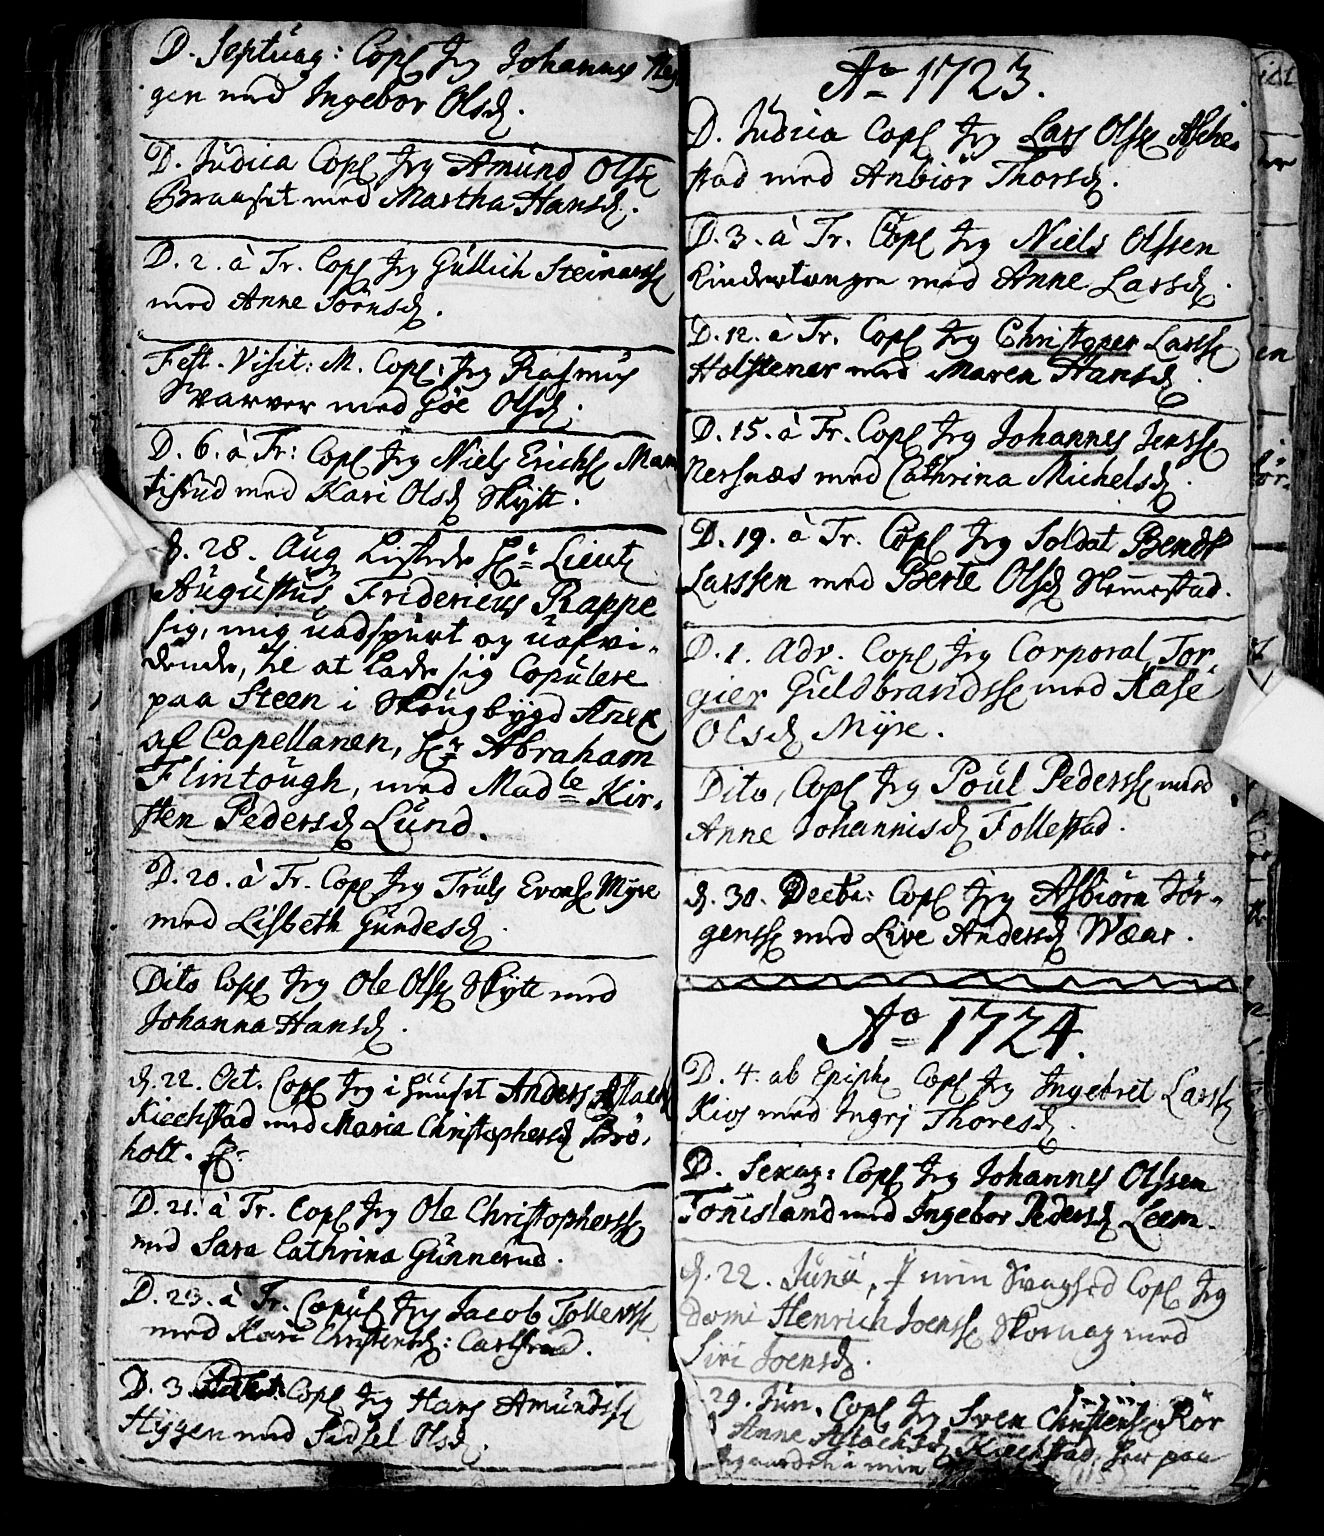 D. Septuag: Copl Jeg Johannes Hey
gen med Ingebor Olsd.
D. Judica Copl Jeg Amund Olss
Braaset med Martha Hansd.
D. 2. à Tr. Copl Jeg Gullich Steinarss
med Anne Sörnsd.
Fest. Visit: M. Copl: Jeg Rasmus
Svarver med Goe Olsd.
D. 6. à Tr: Copl Jeg Niels Erichss Mam
tisrud med Kari Olsd Skytt.
d. 28. Aug Lissede Hr Lieut
Augustus Fridericus Rappe
sig, mig uadspurt og uafvi-
dende, til at lade sig Copulere
paa Steen i Skougbygd Anex
af Capellanen, Hr Abraham
Flintough, med Madle Kir-
sten Pedersd Lund.
D. 20. à Tr. Copl Jeg Truls Evenss Myre
med Lisbeth Gundesd.
Dito Copl Jeg Ole Olss Skytt med
Johanna Hansd.
d. 22. Oct. Copl Jeg i Huuset Anders Aslachs
Kiechstad med Maria Christophersd Brö-
holt.
D. 21. à Tr. Copl Jeg Ole Christopherss
med Sara Cathrina Gunnerud.
D. 23. à Tr. Copul Jeg Jacob Tollerss
med Kari Christensd: Carlsrud.
D. 3 Advt: Copl Jeg Hans Amundss
Hygen med Sidsel Olsd.
Ao 1723.
D. Judica Copl Jeg Lars Olss Asche-
stad med Anbiör Thorsd.
D. 3. à Tr. Copl Jeg Niels Olssen
Kindertangen med Anne Larsd.
D. 12. à Tr. Copl Jeg Christoper Larss
Holstener med Maren Hansd.
D. 15. à Tr. Copl Jeg Johannes Jenss
Nersnæs med Cathrina Michelsd.
D. 19. à Tr. Copl Jeg Soldat Bendt
Larssen med Berte Olsd Hemestad.
D. 1. Adv. Copl Jeg Corporal Tor-
gier Guldbrandss med Aase
Olsd Myre.
Dito, Copl Jeg Poul Pederss med
Anne Johannisd Follestad.
d. 30. Decbr: Copl Jeg Asbiörn Jör-
genss med Live Andersd Wæar.
Ao 1724.
D. 4. ab Epiph. Copl Jeg Ingebret Larss
Kios med Ingri Thoresd.
D. Sexag: Copl Jeg Johannes Olssen
Tonisland med Ingebor Pedersd Leem.
d. 22. Junii, i min Svaghed Copl Jeg
domi Henrich Joenss Skovvag med
Siri Joensd.
29. Jun. Copl Jeg Sven Christenss Rör
Anne Aslachsd Kiechstad, her paa
gaarden i min